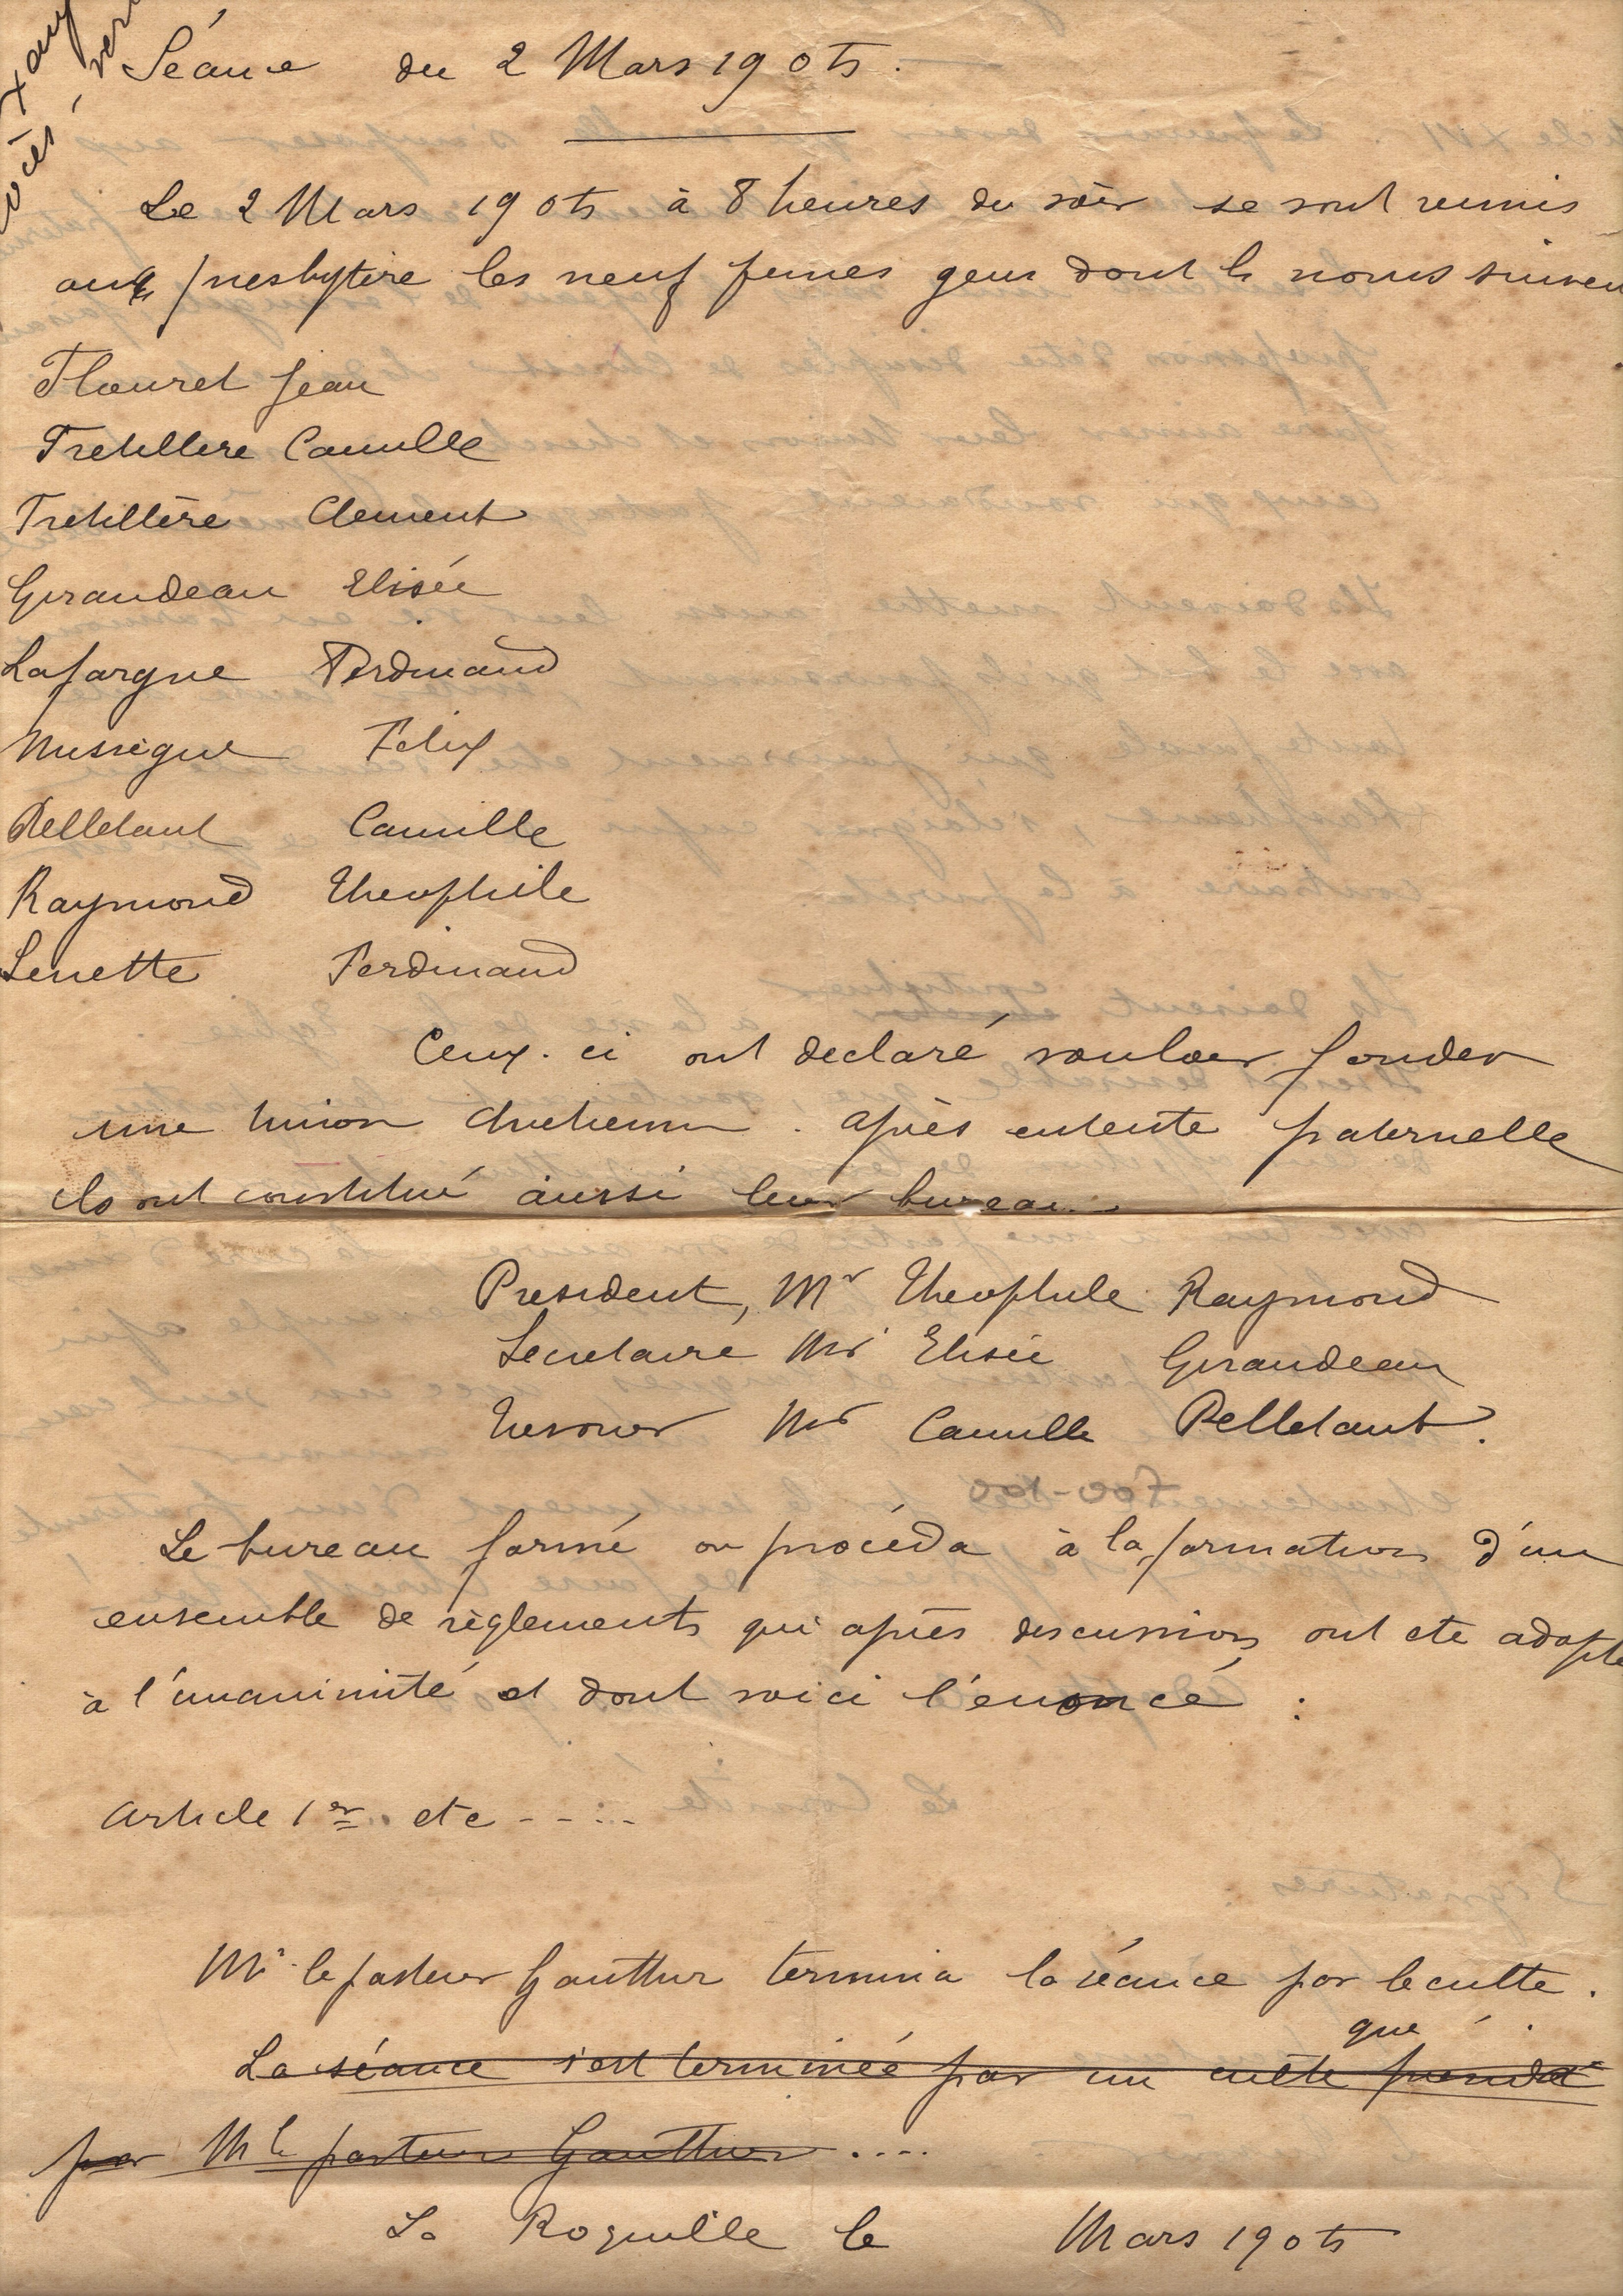 Séance du 2 Mars 1905.
Le 2 Mars 1905 à 8 heures du soir se sont reunis
au presbytère les neuf jeunes gens dont le noms suiven
Flouret Jean
Tretillere Camille
Tretillère Clement
Girandeau Elisée
Lafargue Ferdinand
Messègue Felix
Pelletant Camille
Raymond Theophile
Lenette Ferdinand
Ceux-ci ont declaré vouloir fonder
une Union chretienne. après entente fraternelle
ils ont constitué aussi leur bureau.
President, Mr Theophile Raymond
Secretaire Mr Elisée Girandeau
Tresorier Mr Camille Pelletant.
Le bureau formé on procéda à la formation d'un
ensemble de règlements qui après discussion ont ete adopté
à l'unanimité et dont voici l'enoncé :
Article 1er. etc ----
Mr le pasteur Gautthier termina la séance par le culte.
que
La séance s'est terminée par un culte
par Mr le pasteur Gautthier ....
La Roquille le Mars 1905